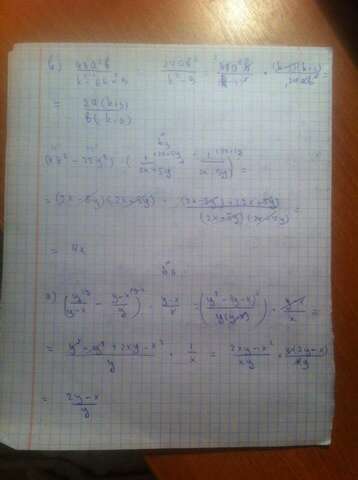 в) \frac{48a^2b}{k^2-6k+9} : \frac{24ab^2}{k^2-9} = \frac{48a^2b}{(k-3)^2} \cdot \frac{(k-3)(k+3)}{24ab^2} =
= \frac{2a(k+3)}{b(k-3)}
(4x^2-25y^2) \cdot (\frac{1}{2x+5y} + \frac{1}{2x-5y}) =
= (2x-5y)(2x+5y) \cdot \frac{(2x-5y)+(2x+5y)}{(2x+5y)(2x-5y)} =
= 4x
(\frac{y}{y-x} - \frac{y-x}{y}) \cdot \frac{y-x}{x} = (\frac{y^2-(y-x)^2}{y(y-x)}) \cdot \frac{y-x}{x} =
= \frac{y^2-y^2+2xy-x^2}{y} \cdot \frac{1}{x} = \frac{2xy-x^2}{xy} = \frac{x(2y-x)}{xy}
= \frac{2y-x}{y}